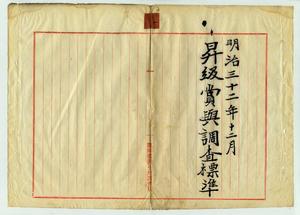 明治三十二年十二月
昇級賞與調査標準